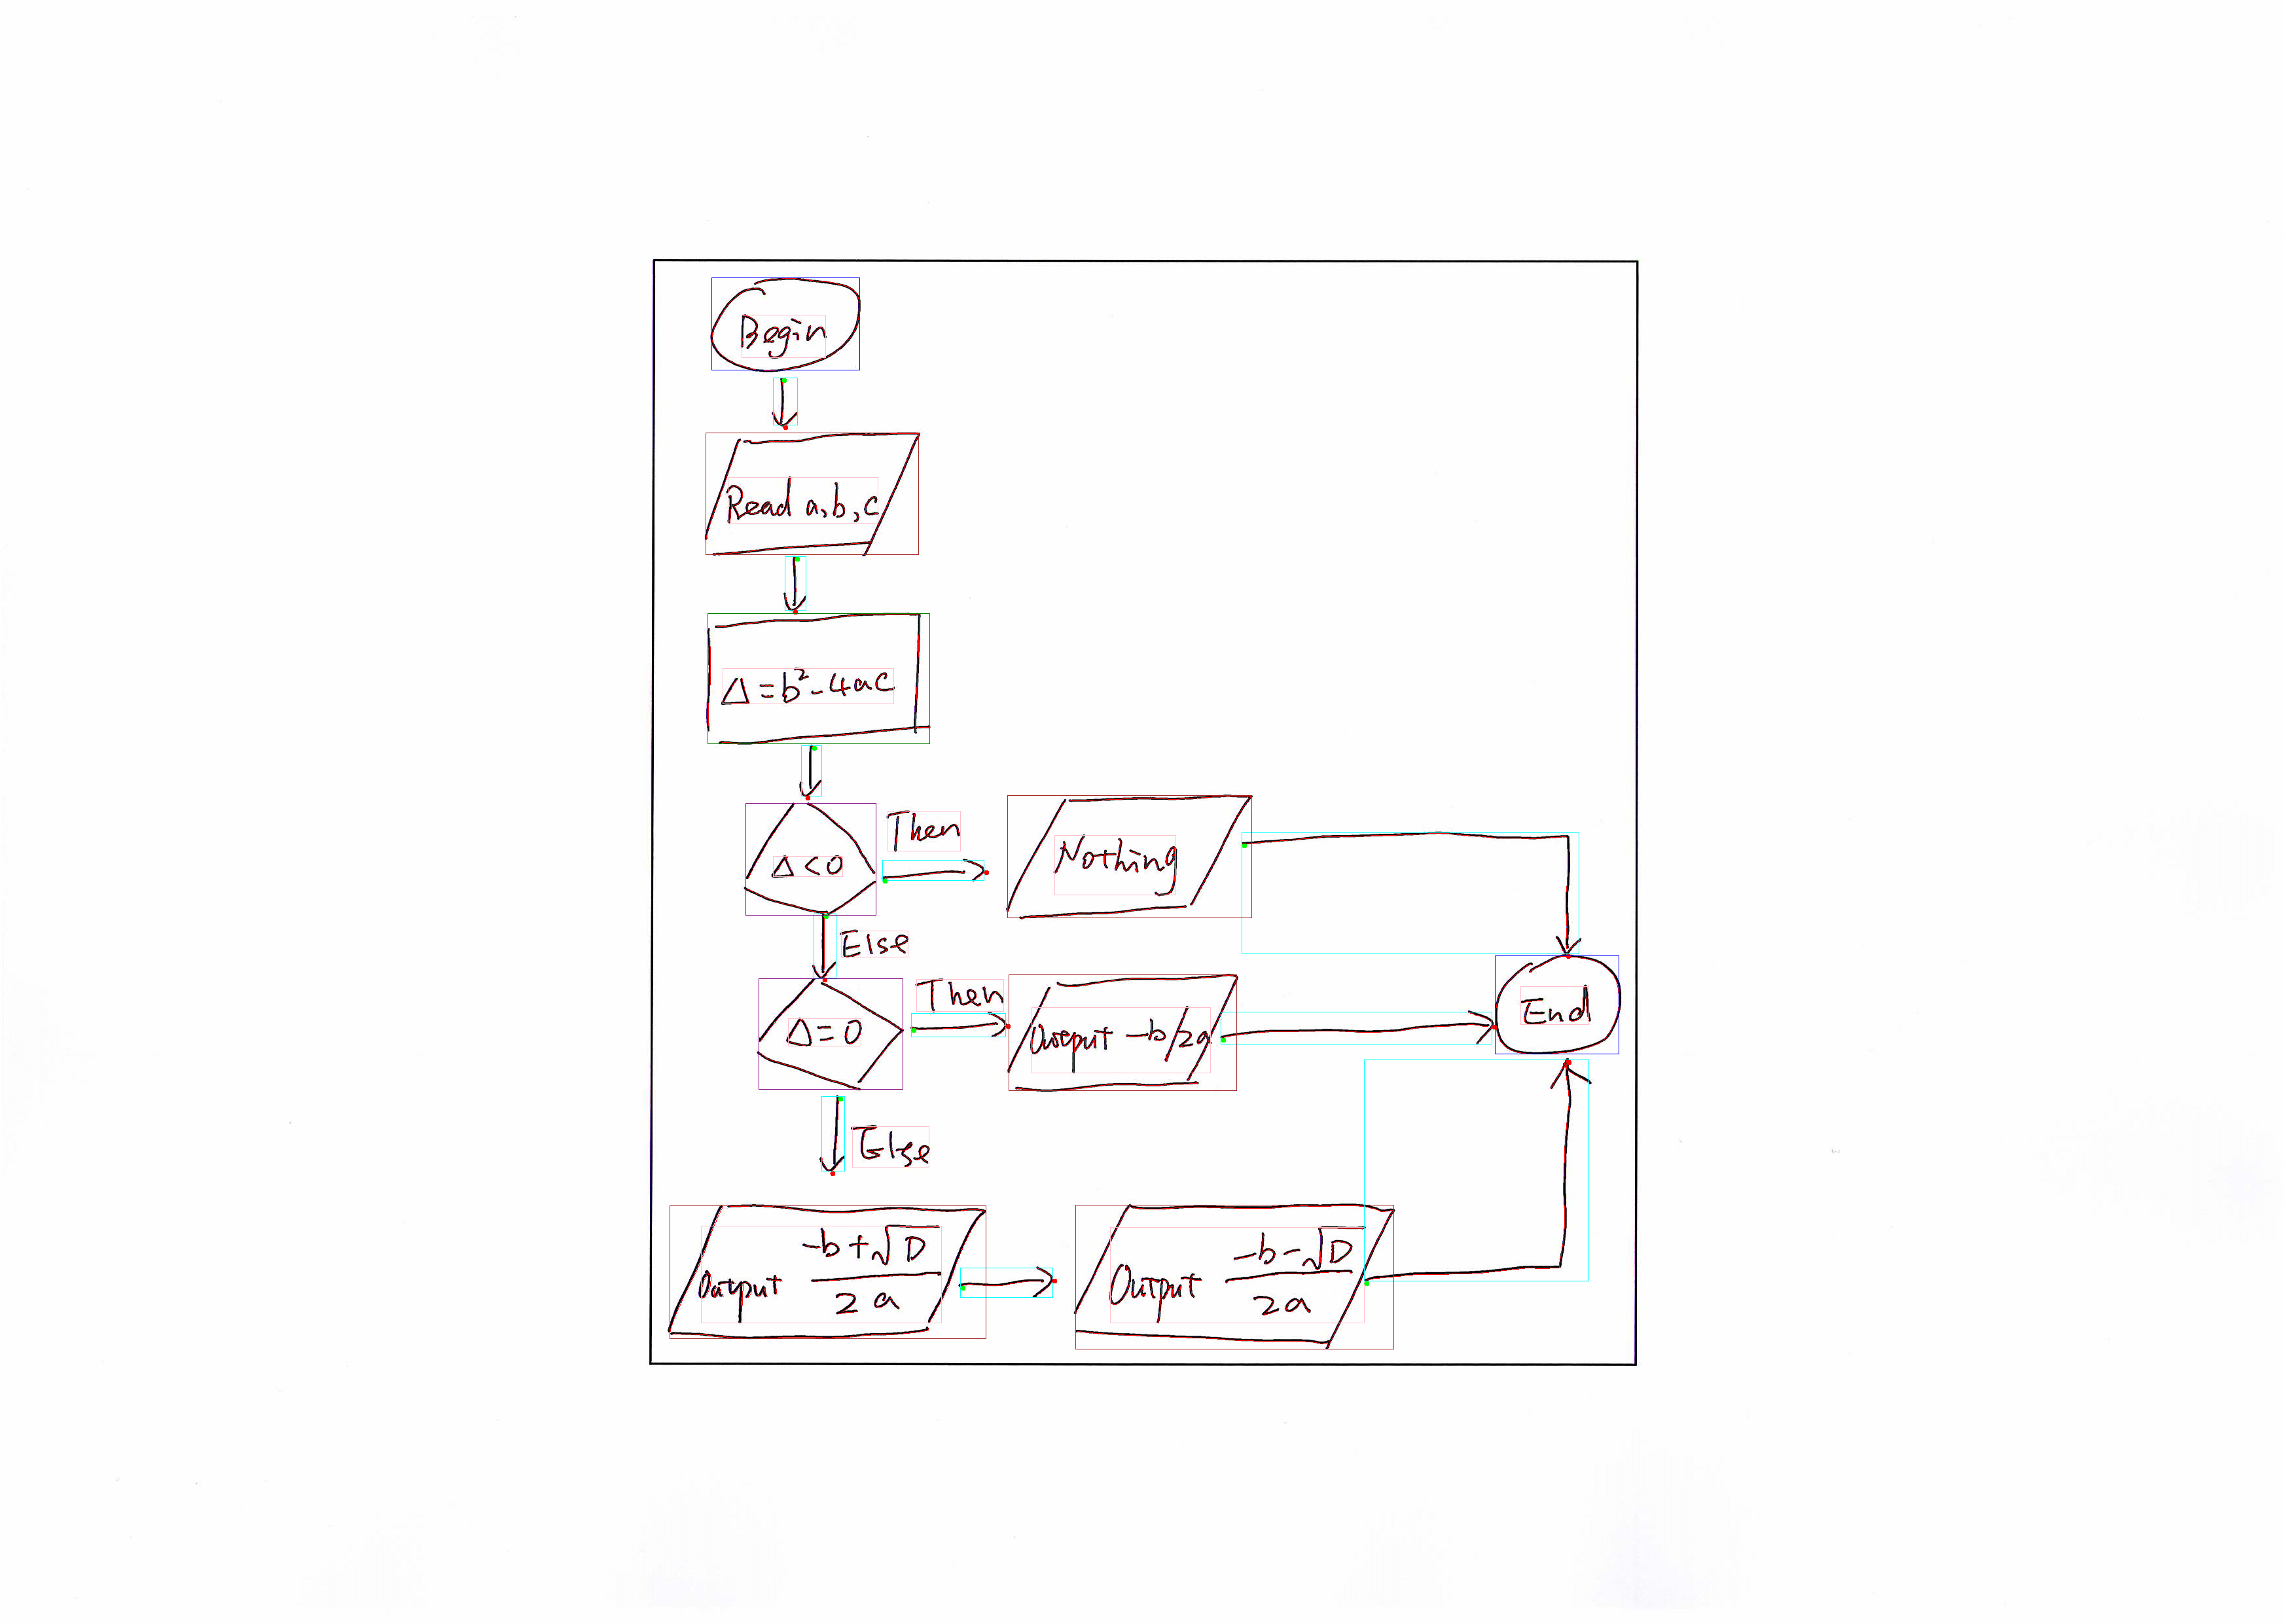 Begin
Read a,b,c
Δ=b²-4ac
Δ<0
Then
Nothing
Else
Δ=0
Then
Output -b/2a
End
Else
Output (-b+√D)/(2a)
Output (-b-√D)/(2a)